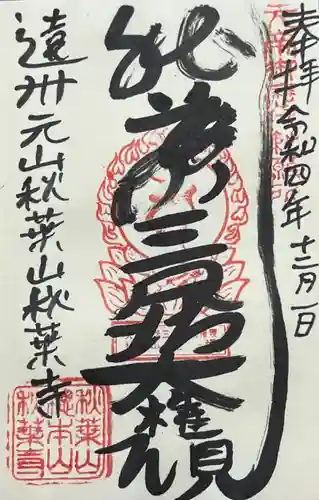 奉拝 令和四年十二月一日
秋葉三尺坊大権現
遠州元山秋葉山秋葉寺
秋葉山
総本山
秋葉寺